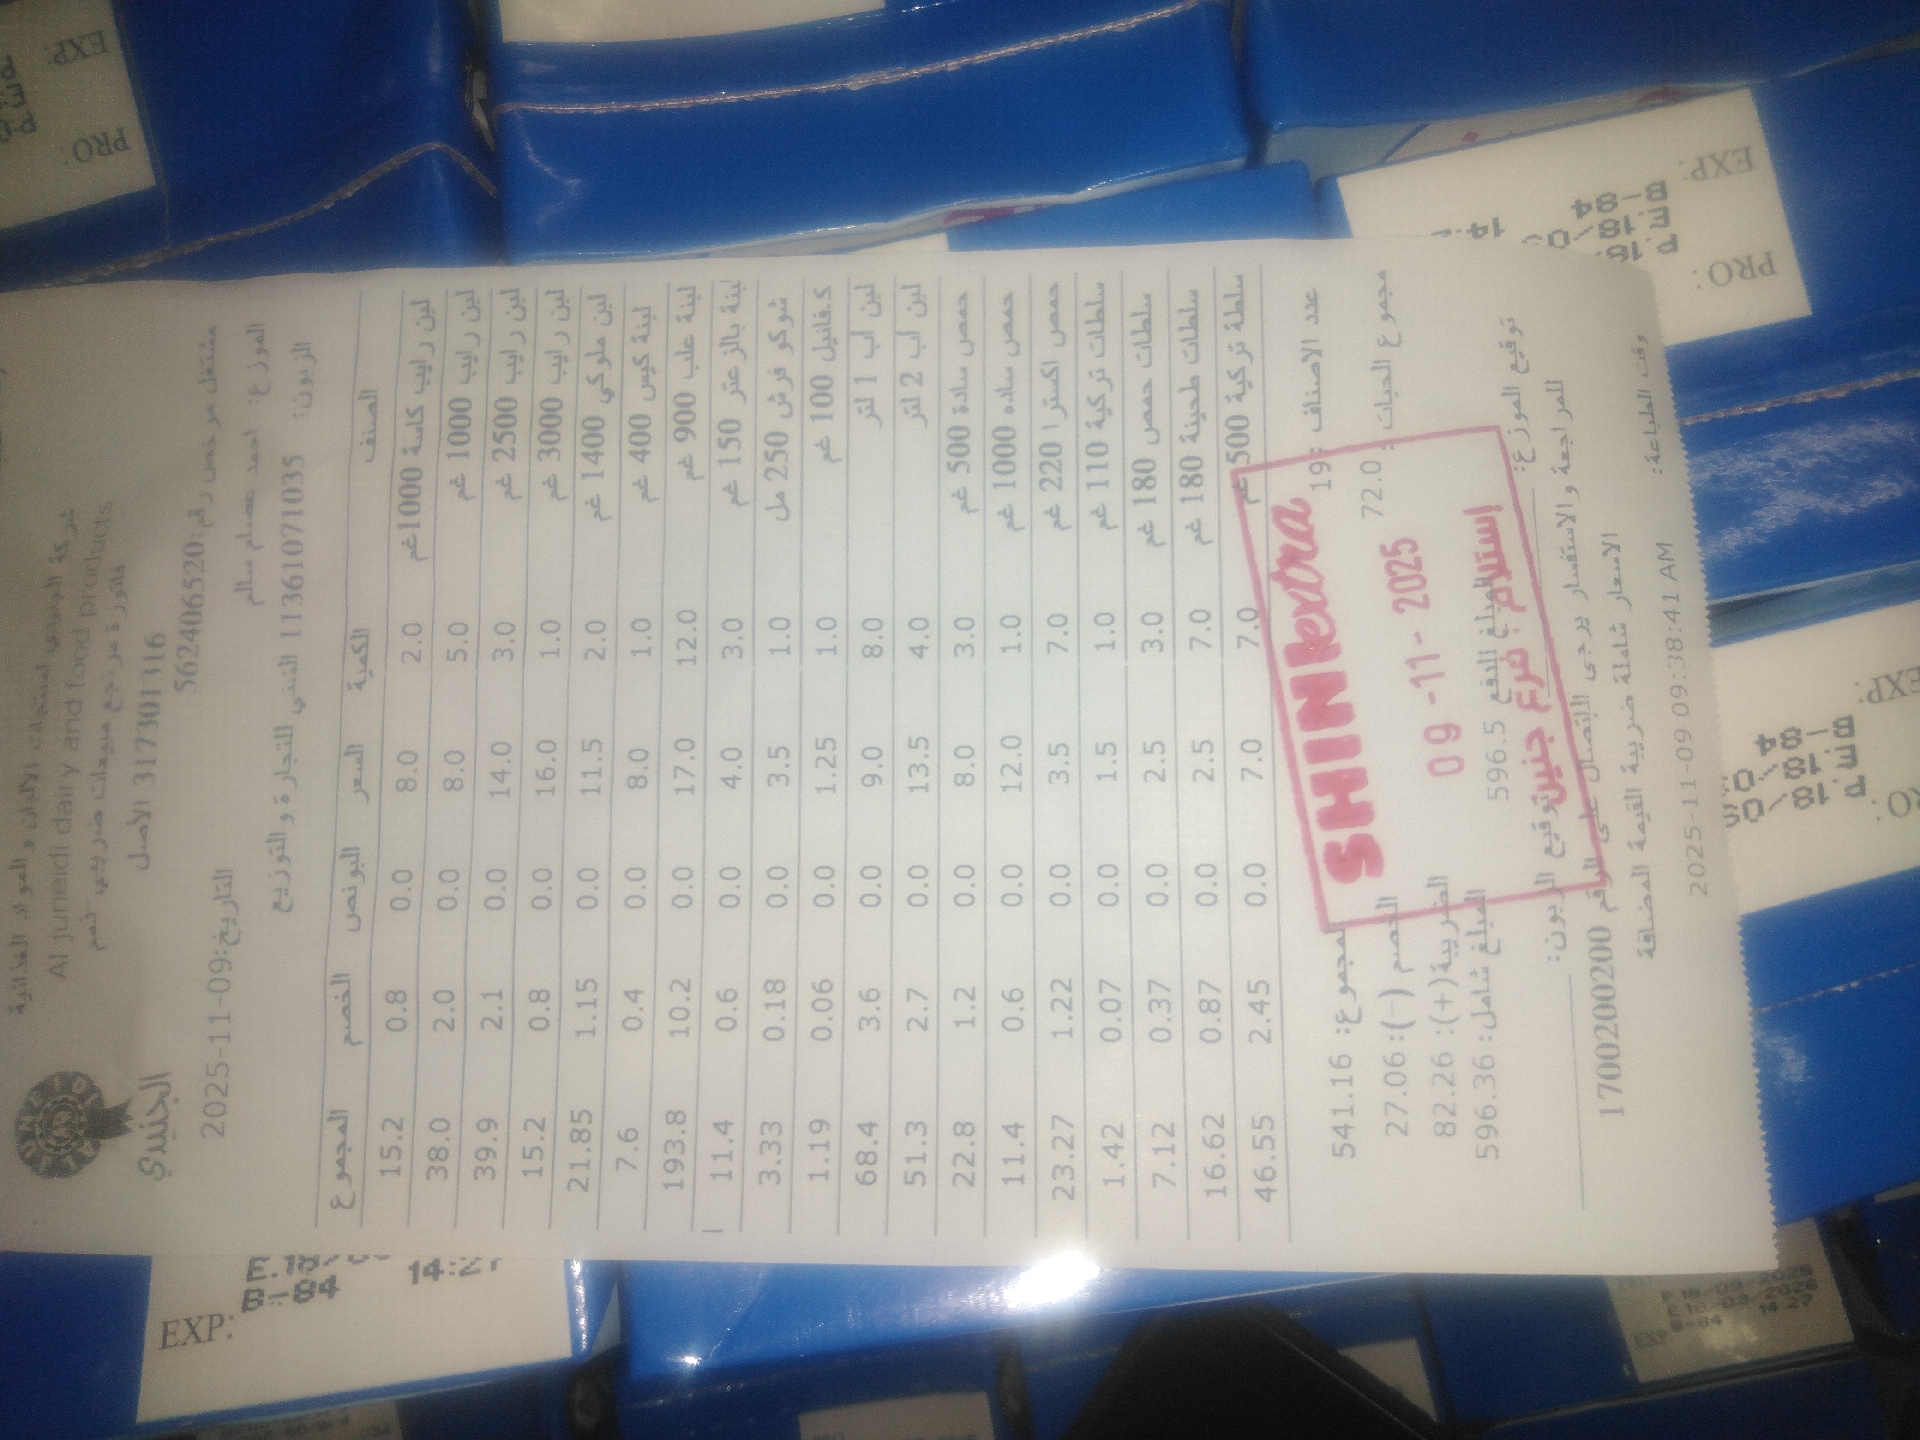 شركة الجنيدي لمنتجات الالبان و المواد الغذائية
Al juneidi dairy and food products
فاتورة مرتجع مبيعات ضريبي نعم
317301316 الاصل
الجنيدي
مشتغل مرخص رقم:562406520
التاريخ:2025-11-09
الموزع: احمد عصام سالم
الزبون: 1136107103S التجارة و التوزيع
الصنف الكمية السعر البونص الخصم المجموع
لبن رايب كاسة 1000غم 2.0 8.0 0.0 0.8 15.2
لبن رايب 1000 غم 5.0 8.0 0.0 2.0 38.0
لبن رايب 2500 غم 3.0 14.0 0.0 2.1 39.9
لبن رايب 3000 غم 1.0 16.0 0.0 0.8 15.2
لبن ملوكي 1400 غم 2.0 11.5 0.0 1.15 21.85
لبنة كيس 400 غم 1.0 8.0 0.0 0.4 7.6
لبنة علب 900 غم 12.0 17.0 0.0 10.2 193.8
لبنة بالزعتر 150 غم 3.0 4.0 0.0 0.6 11.4
شوكو فرش 250 مل 1.0 3.5 0.0 0.18 3.33
ك.فانيل 100 غم 1.0 1.25 0.0 0.06 1.19
لبن اب 1 لتر 8.0 9.0 0.0 3.6 68.4
لبن اب 2 لتر 4.0 13.5 0.0 2.7 51.3
حمص سادة 500 غم 3.0 8.0 0.0 1.2 22.8
حمص ساده 1000 غم 1.0 12.0 0.0 0.6 11.4
حمص اكسترا 220 غم 7.0 3.5 0.0 1.22 23.27
سلطات تركية 110 غم 1.0 1.5 0.0 0.07 1.42
سلطات حمص 180 غم 3.0 2.5 0.0 0.37 7.12
سلطات طحينة 180 غم 7.0 2.5 0.0 0.87 16.62
سلطة تركية 500 غم 7.0 7.0 0.0 2.45 46.55
عدد الاصناف :19 المجموع: 541.16
مجموع الحبات : 72.0 الخصم (-):27.06
الضريبة(+): 82.26
المبلغ الدفع 596.5 المبلغ شامل: 596.36
SHINI extra
09 -11- 2025
إستلام فرع جنين
توقيع الموزع: توقيع الزبون:
للمراجعة و الاستفسار يرجى الاتصال على الرقم 1700200200
الاسعار شاملة ضريبة القيمة المضافة
وقت الطباعة: 2025-11-09 09:38:41 AM
PRO:
EXP:
PRO:
EXP:
EXP:
EXP: